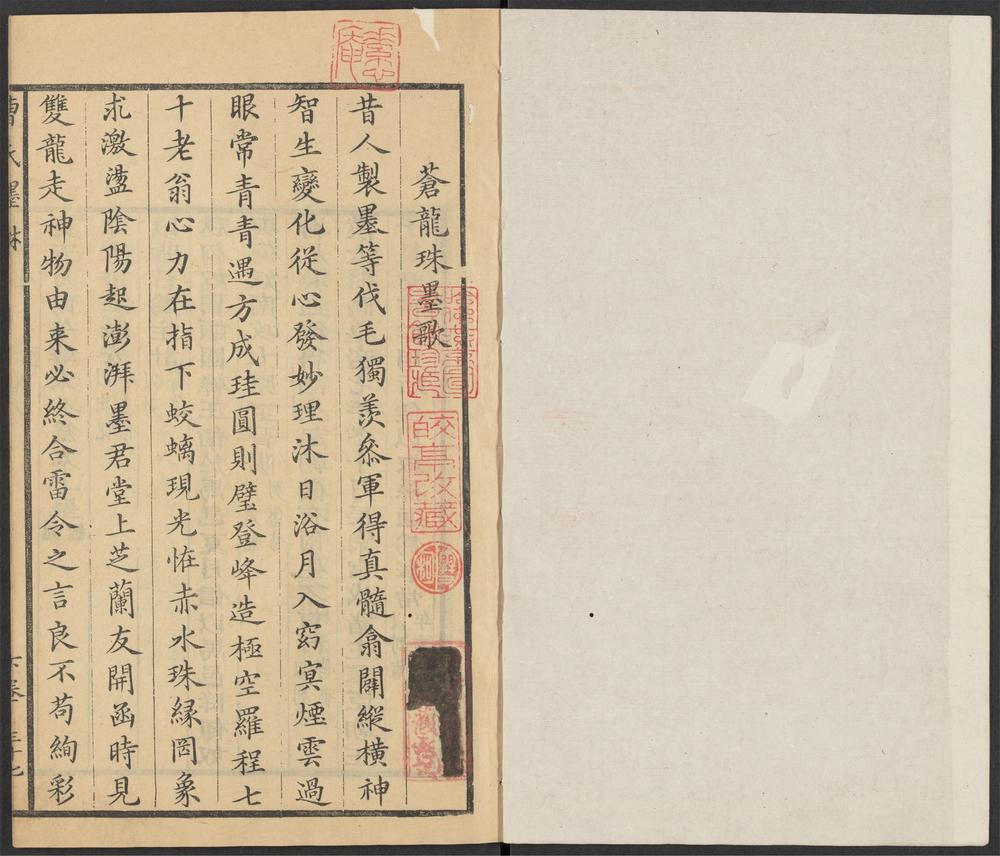 蒼龍珠墨歌
昔人製墨等伐毛獨羨叅軍得真髓翕闢縱橫神
智生變化從心發妙理沐日浴月入窈冥煙雲過
眼常青青遇方成珪圓則璧登峰造極空羅程七
十老翁心力在指下蛟螭現光恠赤水珠緣罔象
求激盪陰陽起澎湃墨君堂上芝蘭友開函時見
雙龍走神物由来必終合雷令之言良不苟絢彩
曹氏墨林
下卷
皎亭收藏